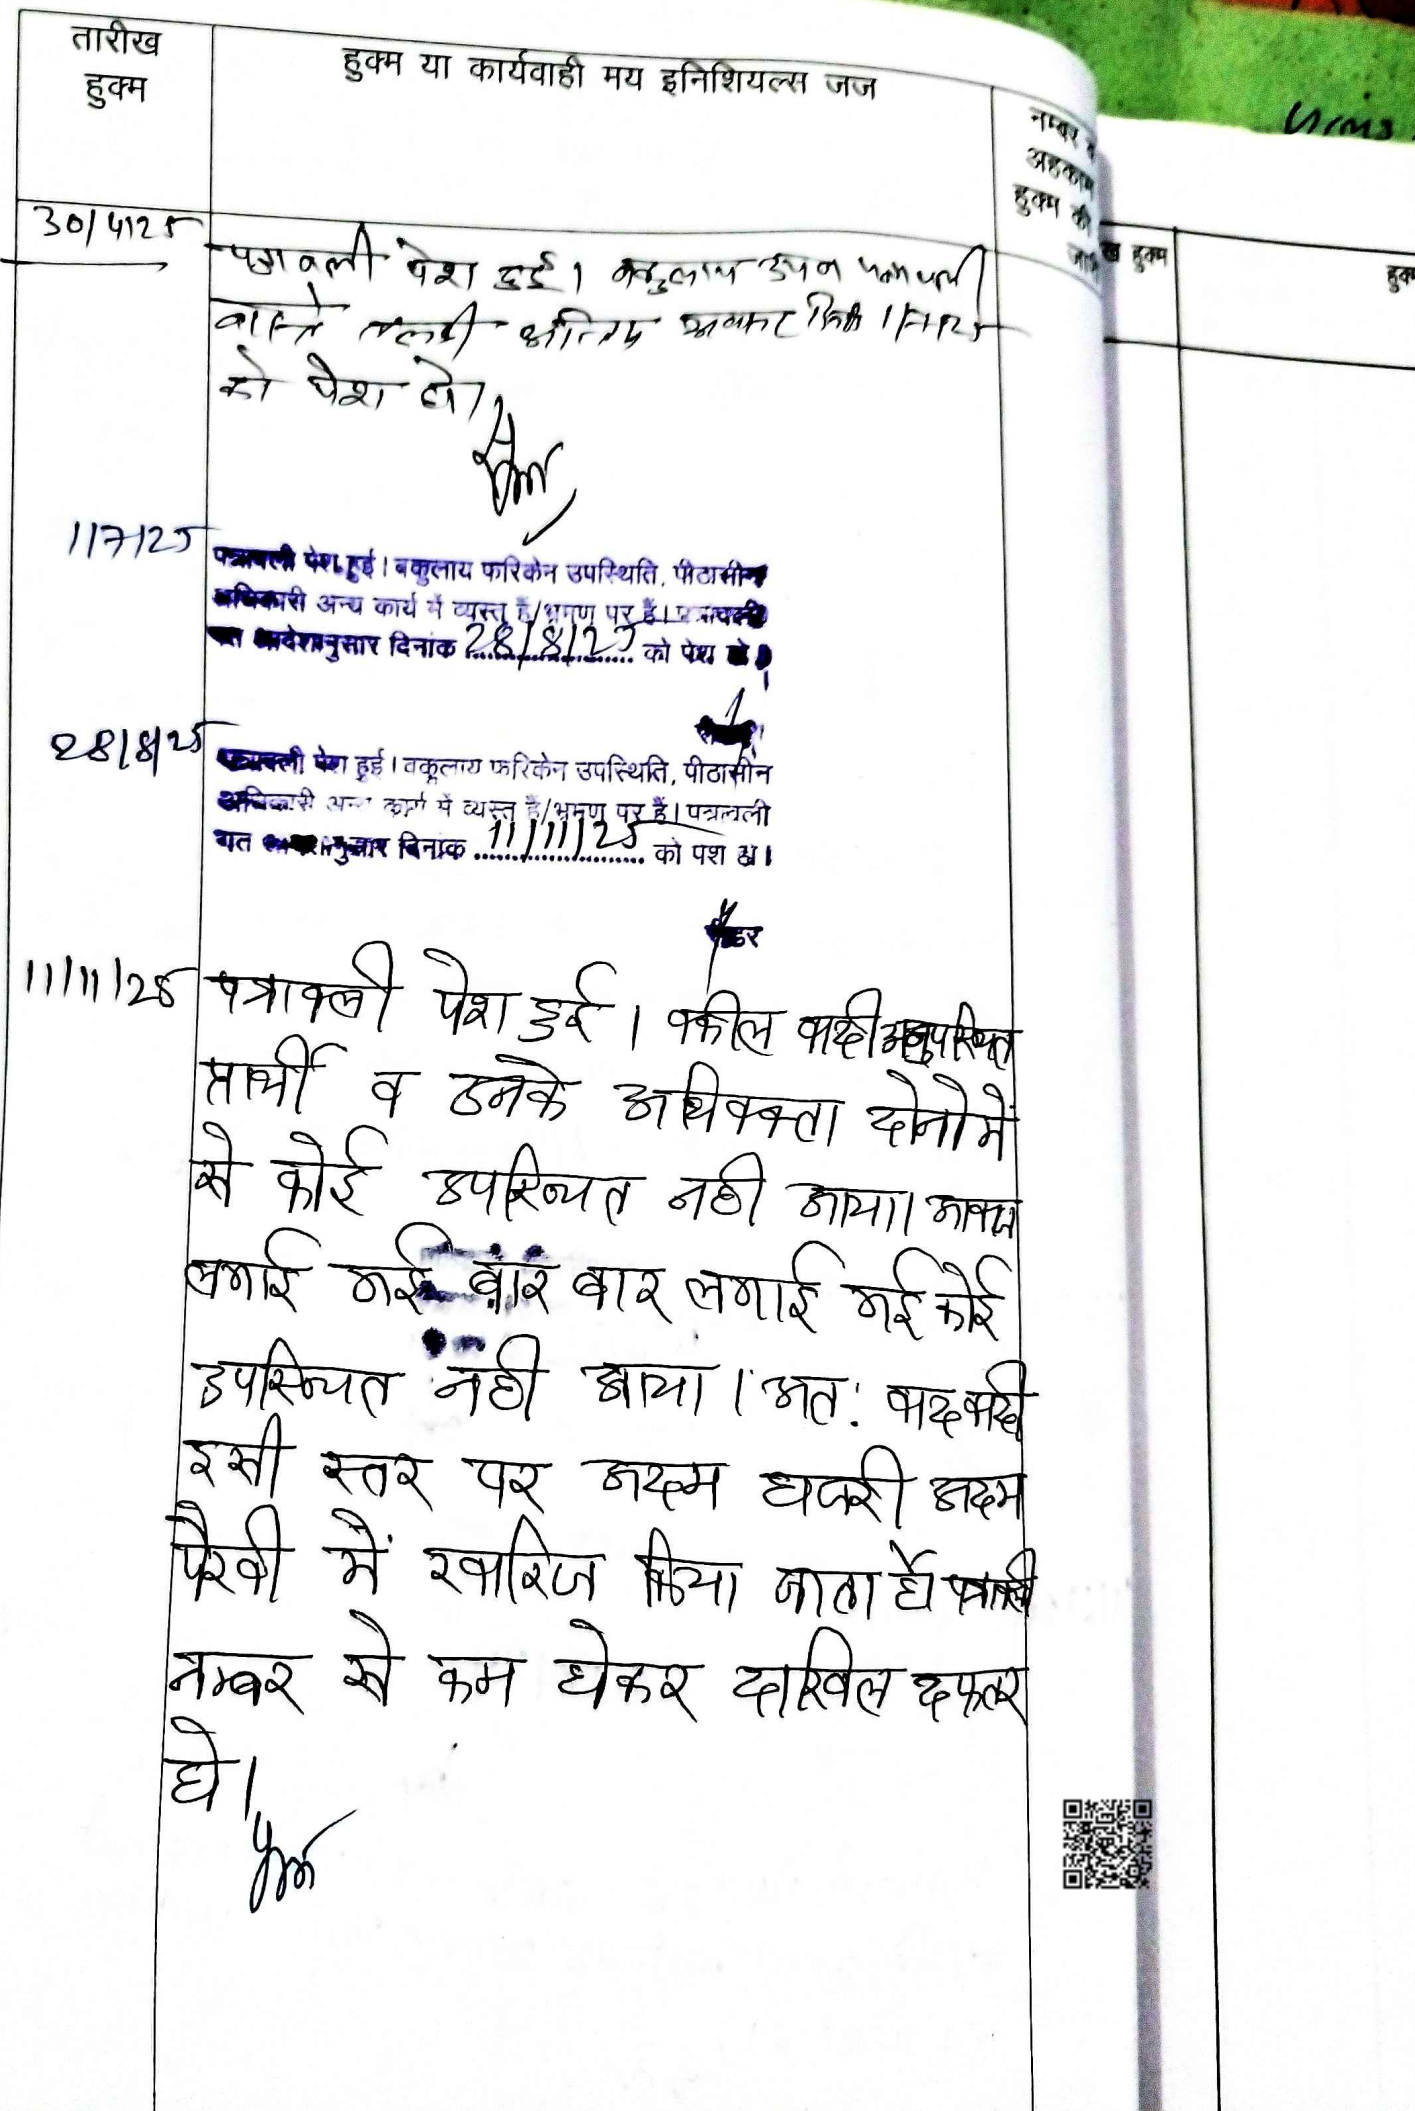 तारीख
हुक्म
हुक्म या कार्यवाही मय इनिशियल्स जज
नम्बर व
अहकाम
हुक्म की
ख हुक्म
30/4/25
पत्रावली पेश हुई। वकुलाय उप० पत्रावली
वास्ते तलबी अन्तिम अवसर 1/7/25
को पेश हो।
1/7/25
पत्रावली पेश हुई। वकुलाय फरिकेन उपस्थिति, पीठासीन
अधिकारी अन्य कार्य में व्यस्त है/भ्रमण पर है। पत्रावली
गत आदेशानुसार दिनांक 28/8/25 को पेश हो।
28/8/25
पत्रावली पेश हुई। वकूलाय फरिकेन उपस्थिति, पीठासीन
अधिकारी अन्य कार्य में व्यस्त है/भ्रमण पर है। पत्रावली
गत आदेशानुसार दिनांक 11/11/25 को पेश हो।
रीडर
11/11/25
पत्रावली पेश हुई। वकील वादी अनुपस्थित
प्रार्थी व उनके अधिवक्ता दोनो में
से कोई उपस्थित नही आया। आवाज
लगाई गई बार बार लगाई गई कोई
उपस्थित नही आया। अत: वाद वादी
इसी स्तर पर अदम हाजरी अदम
पैरवी में खारिज किया जाता है पत्रावली
नम्बर से कम होकर दाखिल दफ्तर
हो।